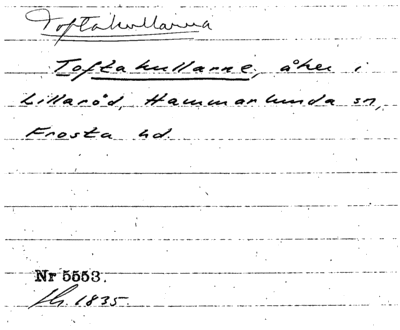 Toftakullarna
Toftakullarne, åker i
Lillaröd, Hammarlunda sn,
Frosta hd.
Nr 5553.
1835.